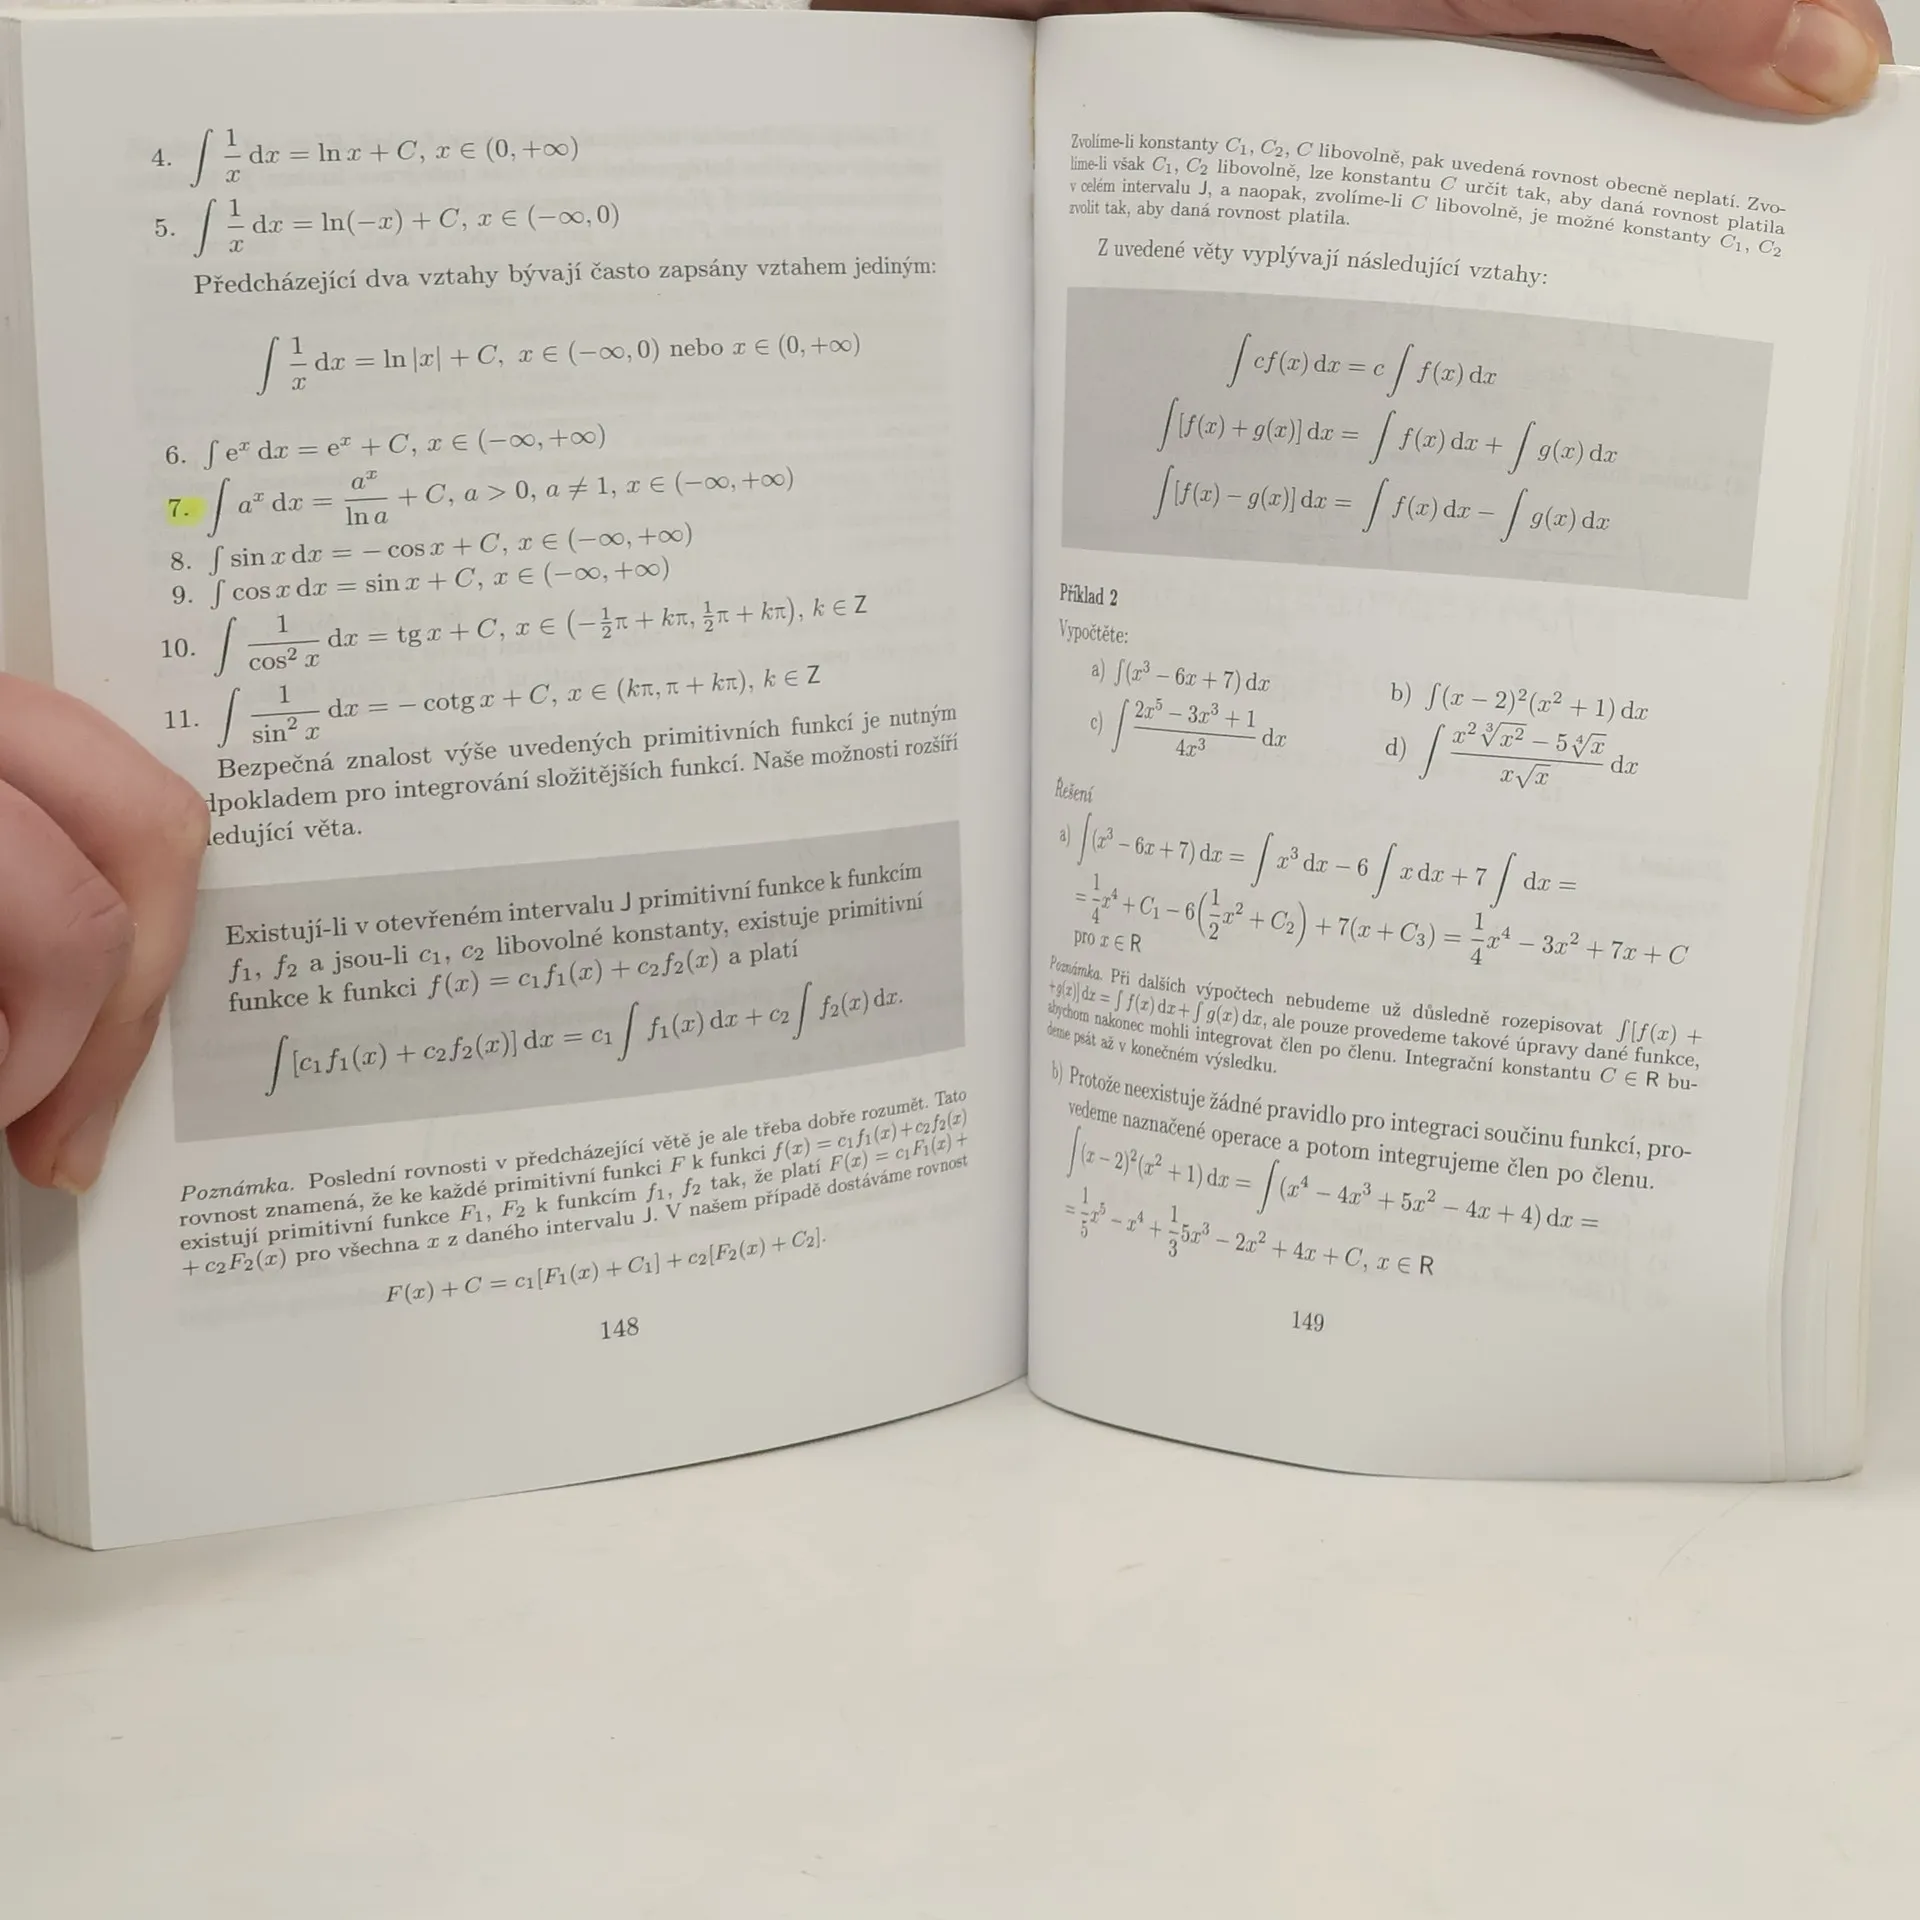 4. ∫ 1/x dx = ln x + C, x ∈ (0, +∞)
5. ∫ 1/x dx = ln(−x) + C, x ∈ (−∞, 0)
Předcházející dva vztahy bývají často zapsány vztahem jediným:
∫ 1/x dx = ln |x| + C, x ∈ (−∞, 0) nebo x ∈ (0, +∞)
6. ∫ eˣ dx = eˣ + C, x ∈ (−∞, +∞)
7. ∫ aˣ dx = aˣ/ln a + C, a > 0, a ≠ 1, x ∈ (−∞, +∞)
8. ∫ sin x dx = − cos x + C, x ∈ (−∞, +∞)
9. ∫ cos x dx = sin x + C, x ∈ (−∞, +∞)
10. ∫ 1/cos² x dx = tg x + C, x ∈ (−½π + kπ, ½π + kπ), k ∈ Z
11. ∫ 1/sin² x dx = − cotg x + C, x ∈ (kπ, π + kπ), k ∈ Z
Bezpečná znalost výše uvedených primitivních funkcí je nutným
dpokladem pro integrování složitějších funkcí. Naše možnosti rozšíří
edující věta.
Existují-li v otevřeném intervalu J primitivní funkce k funkcím
f₁, f₂ a jsou-li c₁, c₂ libovolné konstanty, existuje primitivní
funkce k funkci f(x) = c₁f₁(x) + c₂f₂(x) a platí
∫ [c₁f₁(x) + c₂f₂(x)] dx = c₁ ∫ f₁(x) dx + c₂ ∫ f₂(x) dx.
Poznámka. Poslední rovnosti v předcházející větě je ale třeba dobře rozumět. Tato
rovnost znamená, že ke každé primitivní funkci F k funkci f(x) = c₁f₁(x)+c₂f₂(x)
existují primitivní funkce F₁, F₂ k funkcím f₁, f₂ tak, že platí F(x) = c₁F₁(x) +
+ c₂F₂(x) pro všechna x z daného intervalu J. V našem případě dostáváme rovnost
F(x) + C = c₁[F₁(x) + C₁] + c₂[F₂(x) + C₂].
148
Zvolíme-li konstanty C₁, C₂, C libovolně, pak uvedená rovnost obecně neplatí. Zvo-
líme-li však C₁, C₂ libovolně, lze konstantu C určit tak, aby daná rovnost platila
v celém intervalu J, a naopak, zvolíme-li C libovolně, je možné konstanty C₁, C₂
zvolit tak, aby daná rovnost platila.
Z uvedené věty vyplývají následující vztahy:
∫ cf(x) dx = c ∫ f(x) dx
∫ [f(x) + g(x)] dx = ∫ f(x) dx + ∫ g(x) dx
∫ [f(x) − g(x)] dx = ∫ f(x) dx − ∫ g(x) dx
Příklad 2
Vypočtěte:
a) ∫(x³ − 6x + 7) dx b) ∫(x − 2)²(x² + 1) dx
c) ∫ (2x⁵ − 3x³ + 1)/4x³ dx d) ∫ (x² ∛x² − 5 ∜x)/x√x dx
Řešení
a) ∫(x³ − 6x + 7) dx = ∫ x³ dx − 6 ∫ x dx + 7 ∫ dx =
= 1/4 x⁴ + C₁ − 6(1/2 x² + C₂) + 7(x + C₃) = 1/4 x⁴ − 3x² + 7x + C
pro x ∈ R
Poznámka. Při dalších výpočtech nebudeme už důsledně rozepisovat ∫[f(x) +
+g(x)] dx = ∫ f(x) dx + ∫ g(x) dx, ale pouze provedeme takové úpravy dané funkce,
abychom nakonec mohli integrovat člen po členu. Integrační konstantu C ∈ R bu-
deme psát až v konečném výsledku.
b) Protože neexistuje žádné pravidlo pro integraci součinu funkcí, pro-
vedeme naznačené operace a potom integrujeme člen po členu.
∫(x − 2)²(x² + 1) dx = ∫(x⁴ − 4x³ + 5x² − 4x + 4) dx =
= 1/5 x⁵ − x⁴ + 1/3 5x³ − 2x² + 4x + C, x ∈ R
149